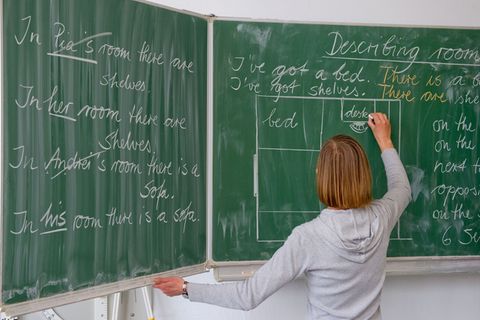 In Pia's room there are
shelves.
In her room there are
shelves.
In Andrei's room there is a
Sofa.
In his room there is a sofa.
Describing room
I've got a bed. There is a
I've got shelves. There are she
bed
desk
on the
on the
next t
opposi
on the
6 Su